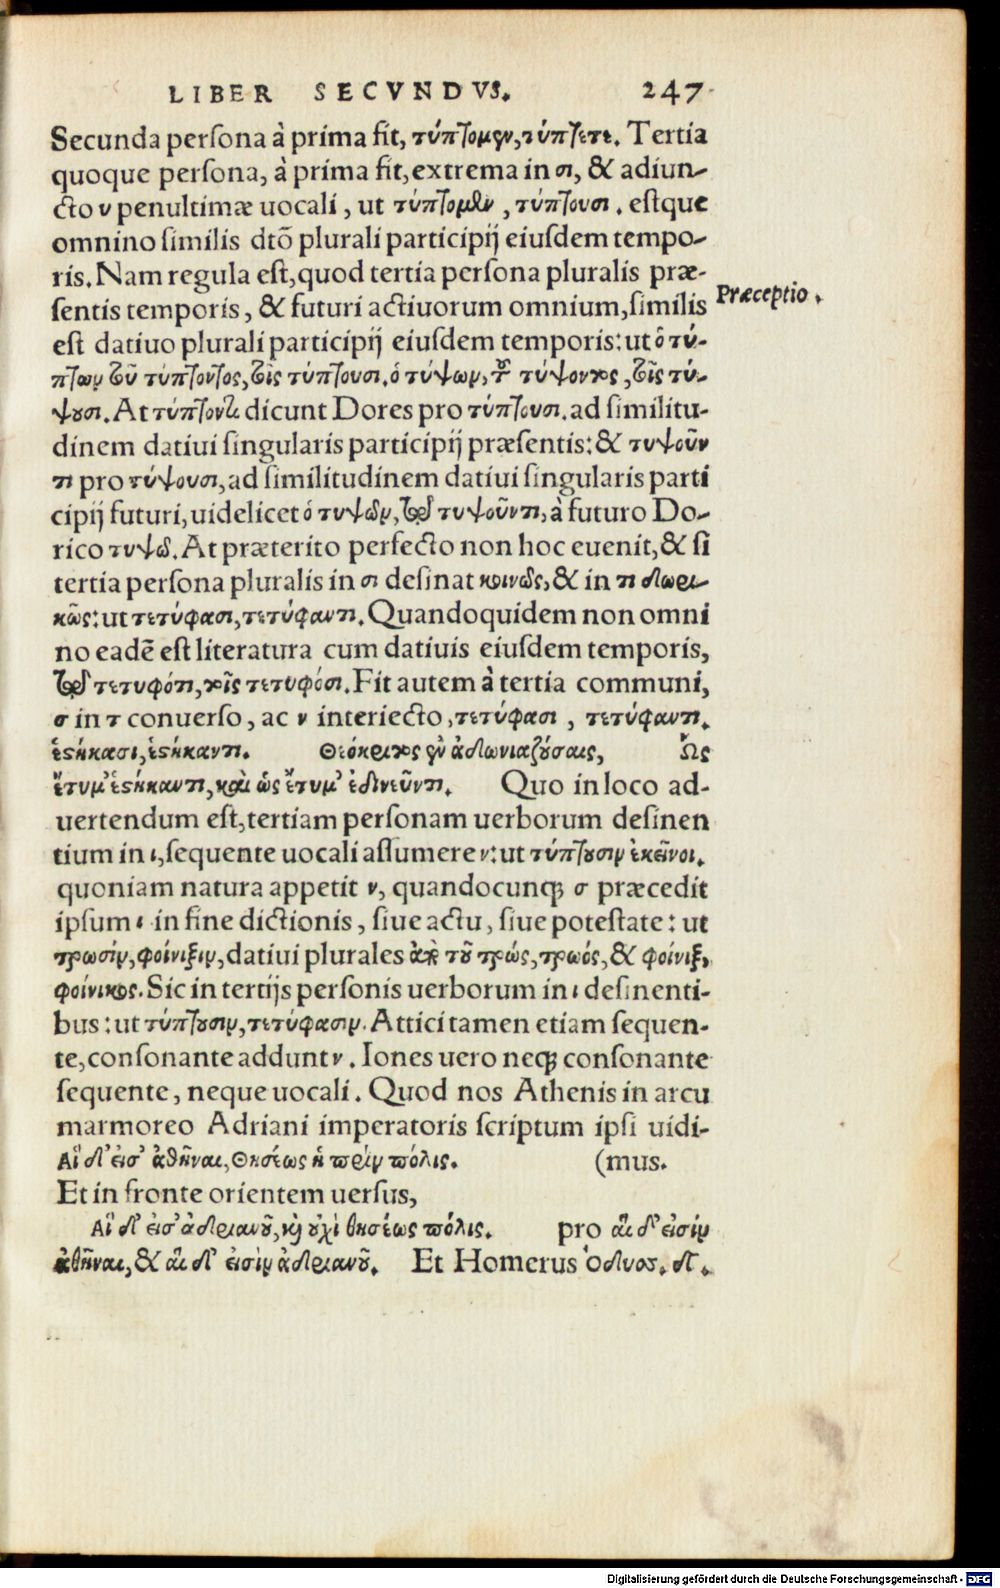 LIBER SECVNDVS. 247
Secunda persona à prima fit, τύπτομεν, τύπτετε. Tertia
quoque persona, à prima fit, extrema in σι, & adiun-
cto υ penultimæ uocali, ut τύπτομεν, τύπτουσι. estque
omnino similis dtõ plurali participij eiusdem tempo-
ris. Nam regula est, quod tertia persona pluralis præ-
sentis temporis, & futuri actiuorum omnium, similis
Præceptio.
est datiuo plurali participij eiusdem temporis: ut ὁ τύ-
πτων τοῦ τύπτοντος, τοῖς τύπτουσι. ὁ τύψων, τοῦ τύψοντος, τοῖς τύ-
ψουσι. At τύπτοντι dicunt Dores pro τύπτουσι. ad similitu-
dinem datiui singularis participij præsentis: & τυψοῦν
τι pro τύψουσι, ad similitudinem datiui singularis parti
cipij futuri, uidelicet ὁ τυψῶν, τῷ τυψοῦντι, à futuro Do-
rico τυψῶ. At præterito perfecto non hoc euenit, & si
tertia persona pluralis in σι desinat κοινῶς, & in τι δωρι-
κῶς: ut τετύφασι, τετύφαντι. Quandoquidem non omni
no eadẽ est literatura cum datiuis eiusdem temporis,
τῷ τετυφότι, τοῖς τετυφόσι. Fit autem à tertia communi,
σ in τ conuerso, ac ν interiecto, τετύφασι, τετύφαντι.
ἑστήκασι, ἑστήκαντι. Θεόκριτος ἐν ἀδωνιαζούσαις, Ὡς
ἔτυμ' ἑστήκαντι, καὶ ὡς ἔτυμ' ἐνδινεῦντι. Quo in loco ad-
uertendum est, tertiam personam uerborum desinen
tium in ι, sequente uocali assumere ν: ut τύπτουσιν ἐκεῖνοι.
quoniam natura appetit ν, quandocunq; σ præcedit
ipsum ι in fine dictionis, siue actu, siue potestate: ut
τρωσὶν, φοίνιξιν, datiui plurales ἀπὸ τοῦ τρώς, τρωός, & φοίνιξ,
φοίνικος. Sic in tertijs personis uerborum in ι desinenti-
bus: ut τύπτουσιν, τετύφασιν. Attici tamen etiam sequen-
te, consonante addunt ν. Iones uero neq; consonante
sequente, neque uocali. Quod nos Athenis in arcu
marmoreo Adriani imperatoris scriptum ipsi uidi-
Αἵ δ' εἰσ' ἀθῆναι, Θησέως ἡ πρὶν πόλις. (mus.
Et in fronte orientem uersus,
Αἵ δ' εἰσ' ἀδριανοῦ, κ' οὐχὶ θησέως πόλις. pro αἵ δ' εἰσὶν
ἀθῆναι, & αἵ δ' εἰσὶν ἀδριανοῦ. Et Homerus Ὀδυσσ. δ.
Digitalisierung gefördert durch die Deutsche Forschungsgemeinschaft - DFG